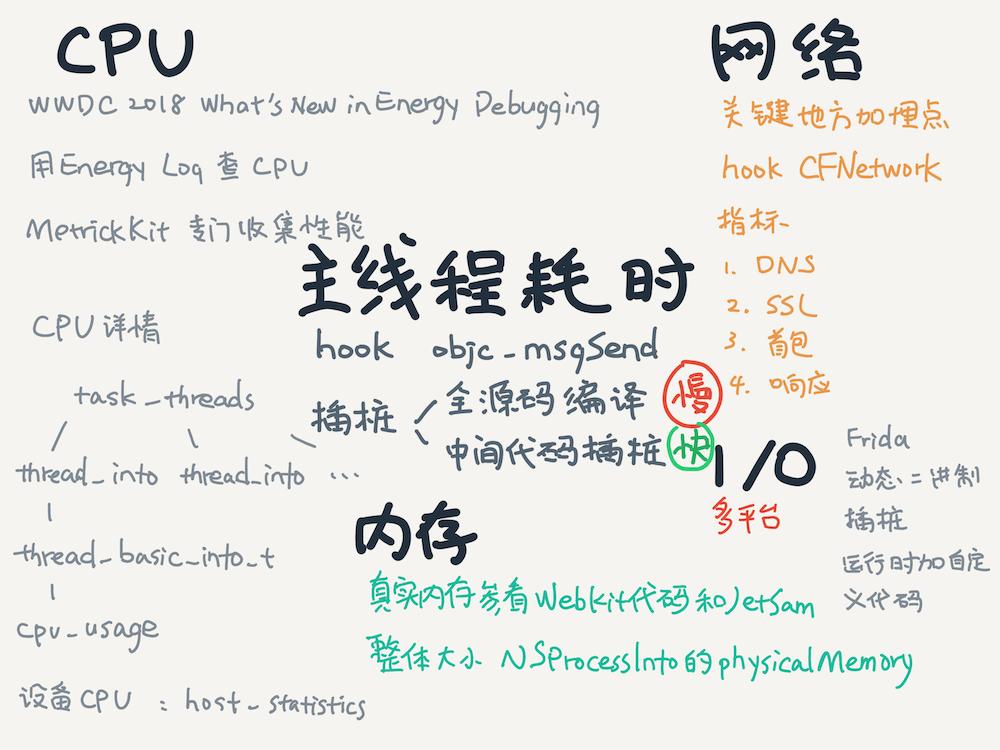 CPU
WWDC 2018 What's New in Energy Debugging
用Energy Log 查 CPU
MetrickKit 专门收集性能
CPU 详情
task_threads
thread_into thread_into ...
thread_basic_into_t
cpu_usage
设备CPU : host_statistics
主线程耗时
hook objc_msgSend
插桩
全源码编译 慢
中间代码插桩 快
内存
真实内存参看Webkit代码和JetSam
整体大小 NSProcessInto的physicalMemory
网络
关键地方加埋点
hook CFNetwork
指标
1. DNS
2. SSL
3. 首包
4. 响应
I/O
多平台
Frida
动态二进制
插桩
运行时加自定
义代码